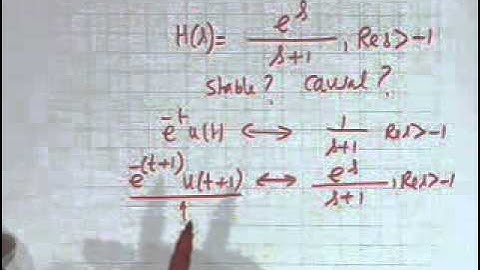 H(s) = e^s / s+1 , Re s > -1
stable? causal?
e^-t u(t) ↔ 1 / s+1 Re s > -1
e^-(t+1) u(t+1) ↔ e^s / s+1 , Re s > -1